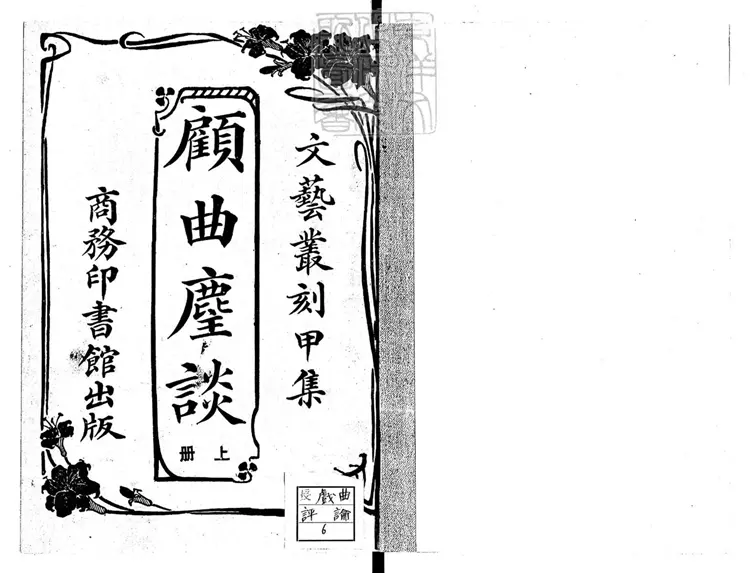 文藝叢刻甲集
顧曲麈談
上册
商務印書館出版
戲曲
評論
6